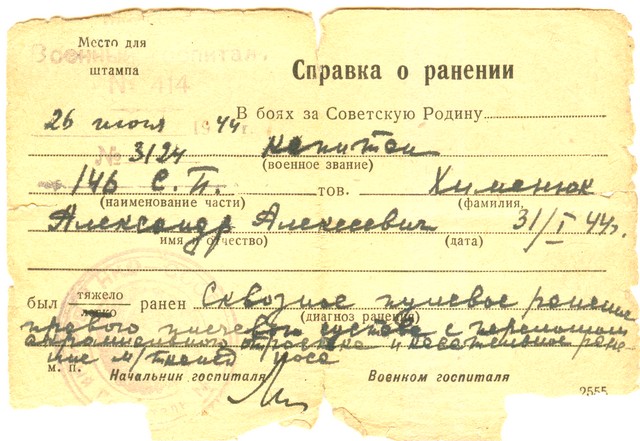 Место для
штампа
Военный госпиталь
№ 414
Справка о ранении
26 июля 1944 г.
В боях за Советскую Родину
№ 3124 капитан
(воинское звание)
146 С.П. тов. Хименюк
(наименование части) (фамилия,
Александр Алексеевич 31/I 44г.
имя и отчество) (дата)
был тяжело ранен Сквозное пулевое ранение
легко (диагноз ранения)
правого плечевого сустава с переломом
отростка и касательное ране-
ние м/тканей носа
м. п. Начальник госпиталя Военком госпиталя
2555